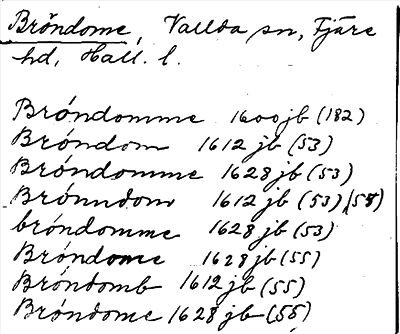 Bröndome, Vallda sn, Fjäre
hd, Hall. l.
Bróndomme 1600 jb (182)
Bróndom 1612 jb (53)
Bróndomme 1628 jb (53)
Brónndom 1612 jb (53) (58)
bróndomme 1628 jb (53)
Bróndome 1628 jb (55)
Bróndomb 1612 jb (55)
Bróndome 1628 jb (56)